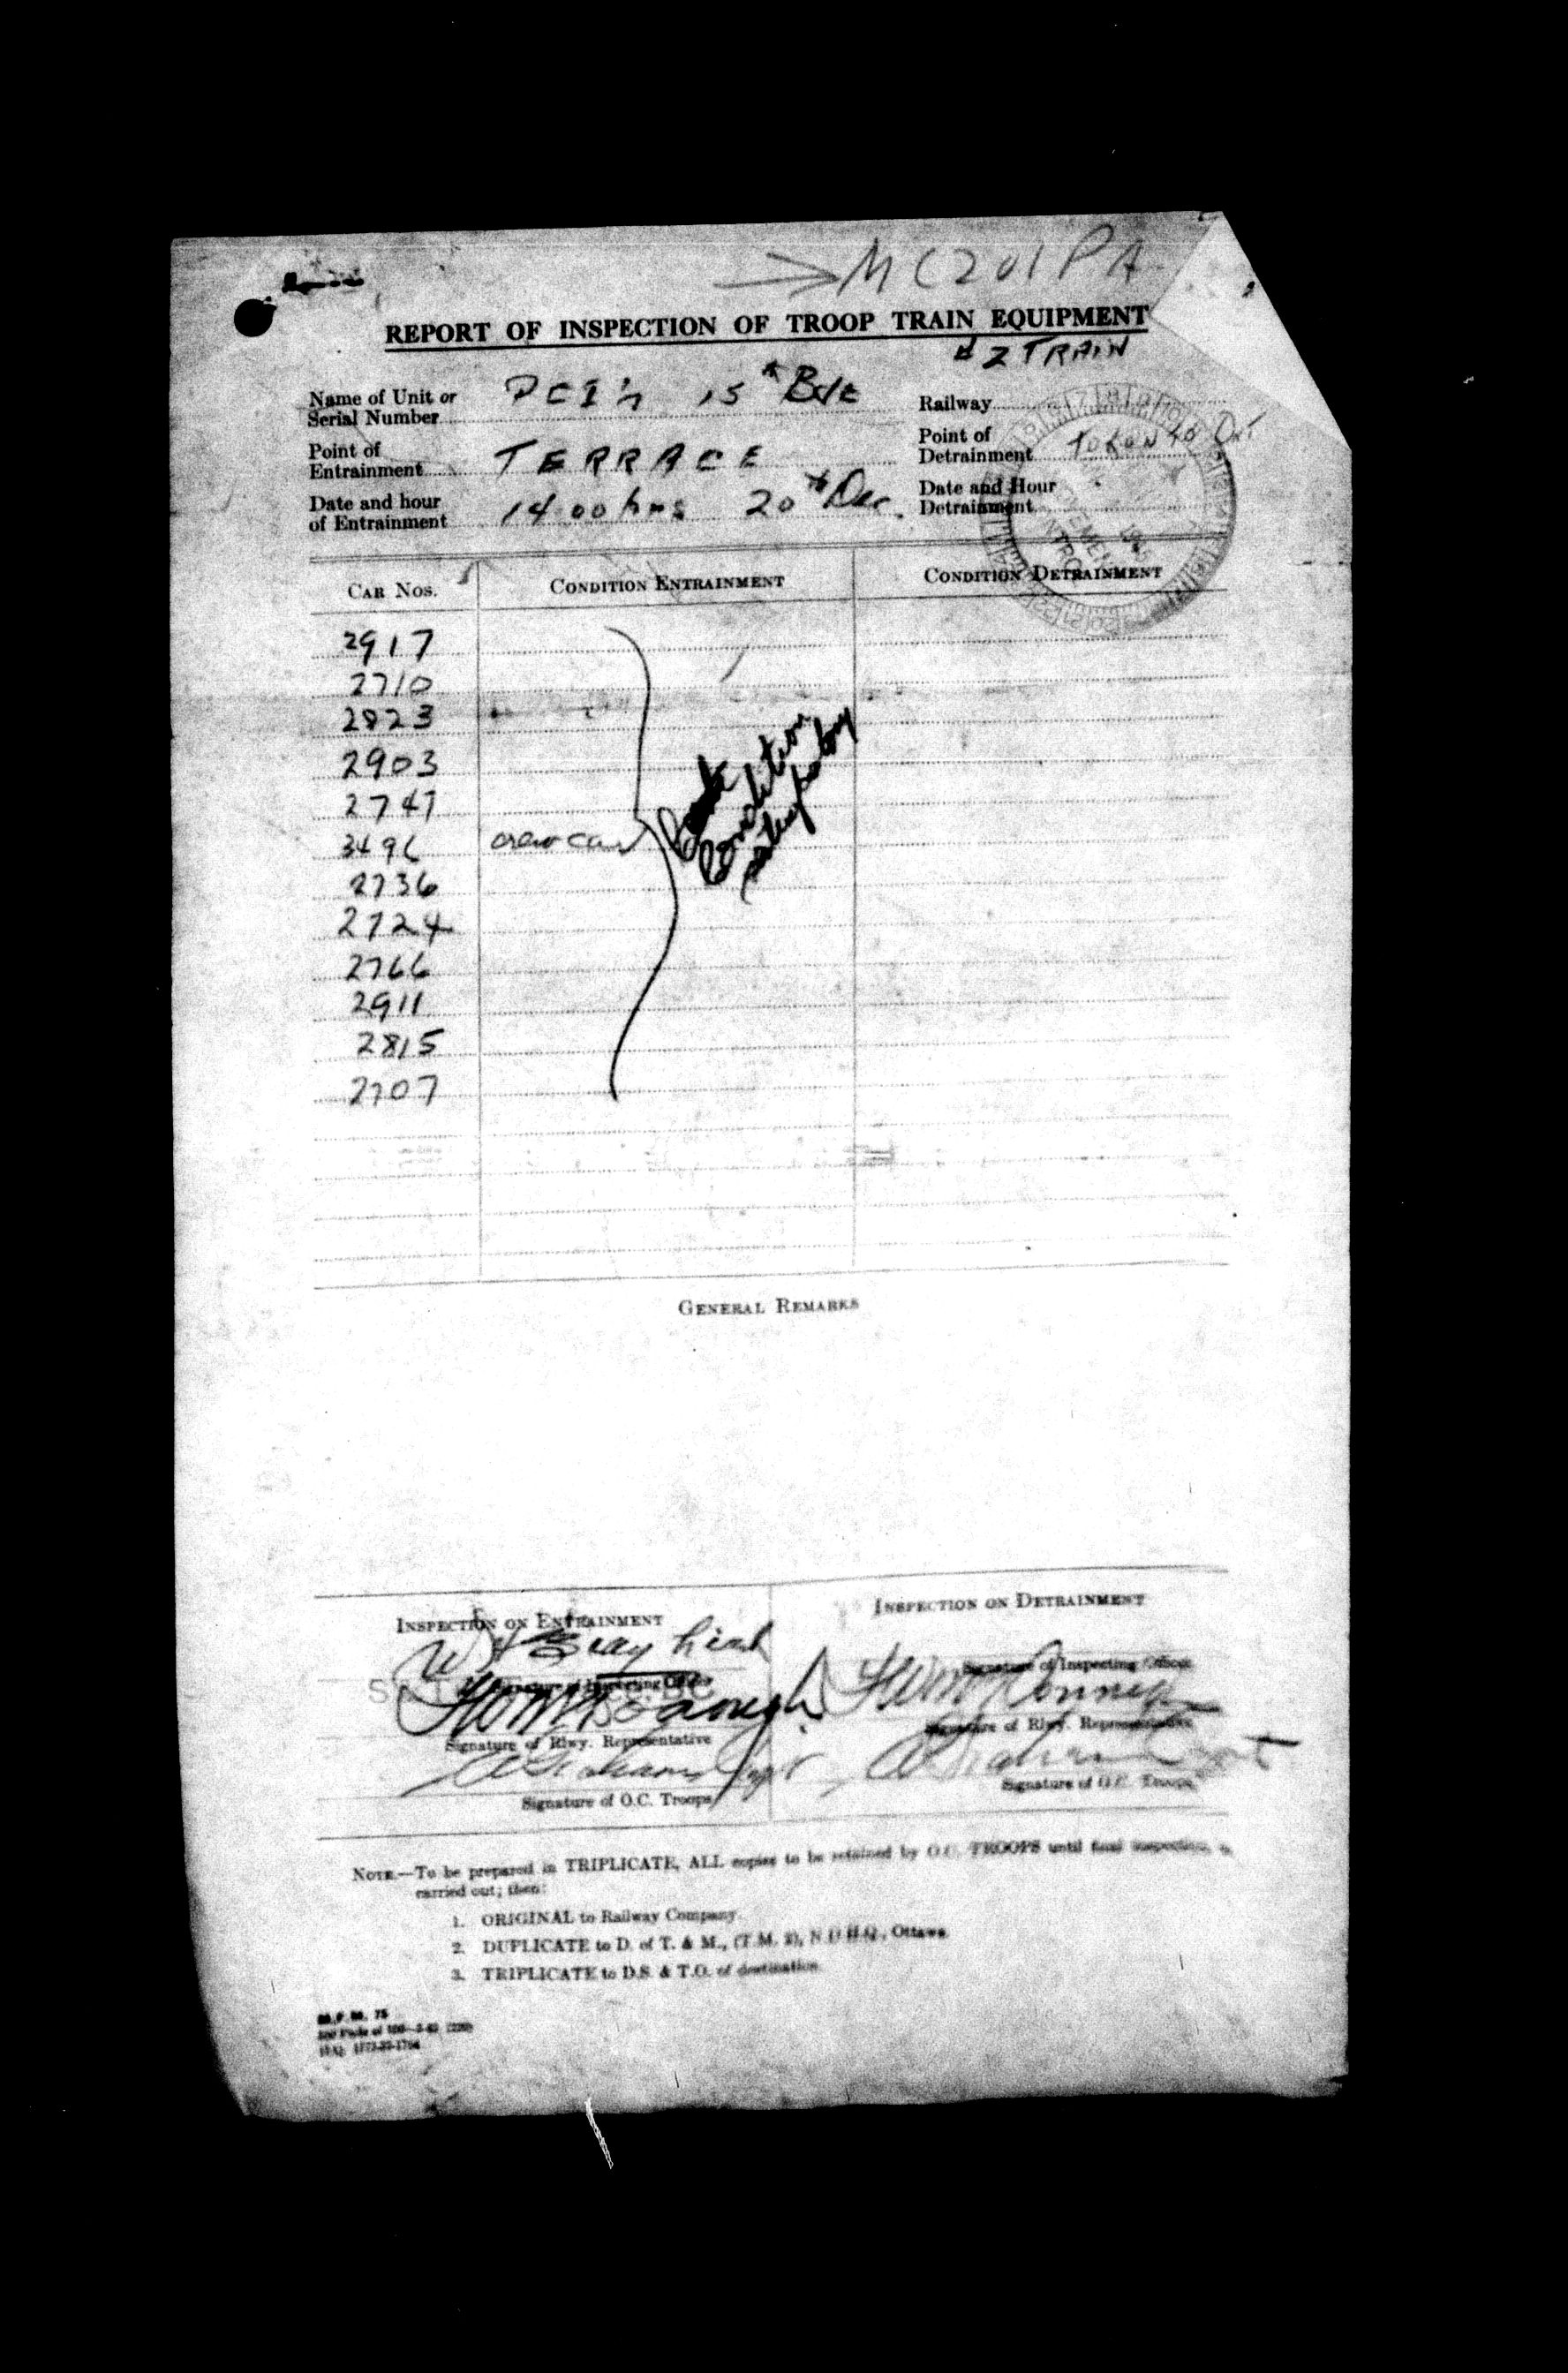 → MC201PA
REPORT OF INSPECTION OF TROOP TRAIN EQUIPMENT
# 2 TRAIN
Name of Unit or Serial Number 15th Bde
Railway
Point of Entrainment TERRACE
Point of Detrainment TORONTO ONT
Date and hour of Entrainment 14 00 hrs 20th Dec.
Date and Hour Detrainment
CAR NOS. CONDITION ENTRAINMENT CONDITION DETRAINMENT
2917
2710
2823
2903
2747
3496 crew car
Condition
2736
2724
2766
2911
2815
2707
GENERAL REMARKS
INSPECTION ON ENTRAINMENT
INSPECTION ON DETRAINMENT
Signature of Inspecting Officer
Signature of Inspecting Officer
Signature of Rlwy. Representative
Signature of Rlwy. Representative
Signature of O.C. Troops
Signature of O.C. Troops
NOTE.—To be prepared in TRIPLICATE, ALL copies to be retained by O.C. TROOPS until final inspection, is
carried out; then:
1. ORIGINAL to Railway Company.
2. DUPLICATE to D. of T. & M., (T.M. 2), N.D.H.Q., Ottawa.
3. TRIPLICATE to D.S. & T.O. of destination.